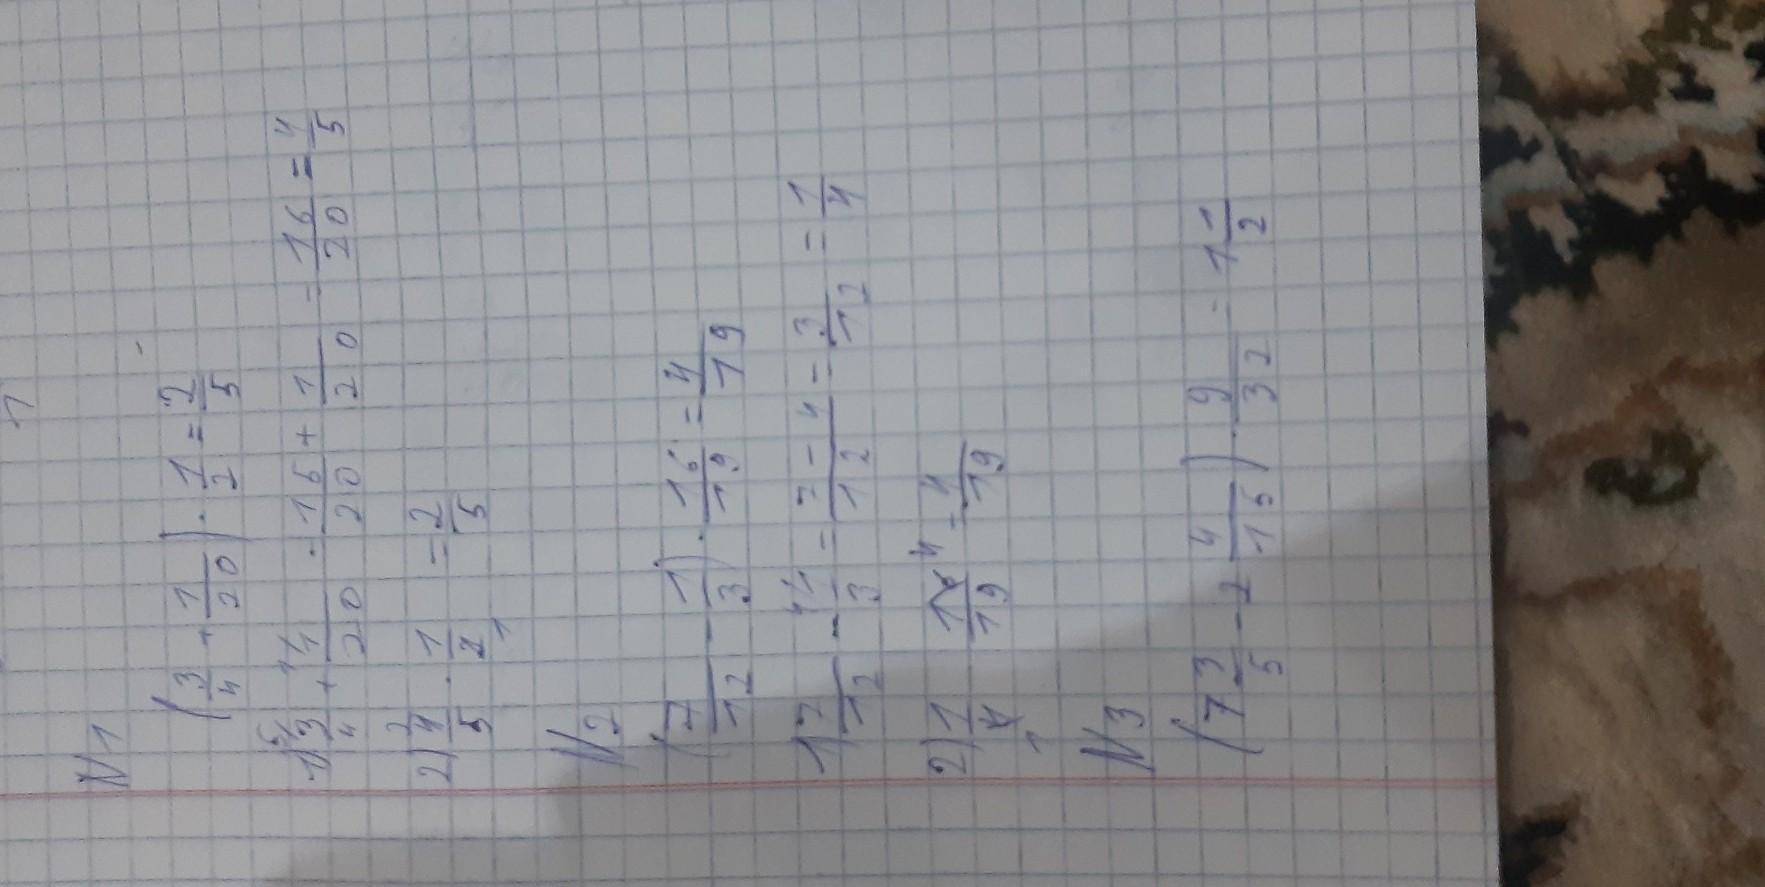 N1
(3/4 + 1/20) · 1/2 = 2/5
1) 3/4 + 1/20 = 15/20 + 1/20 = 16/20 = 4/5
2) 4/5 · 1/2 = 2/5
N2
(7/12 - 1/3) · 16/19 = 4/19
1) 7/12 - 1/3 = 7-4/12 = 3/12 = 1/4
2) 1/4 16/19 = 4/19
N3
(7 3/5 - 2 4/15) · 9/32 = 1 1/2